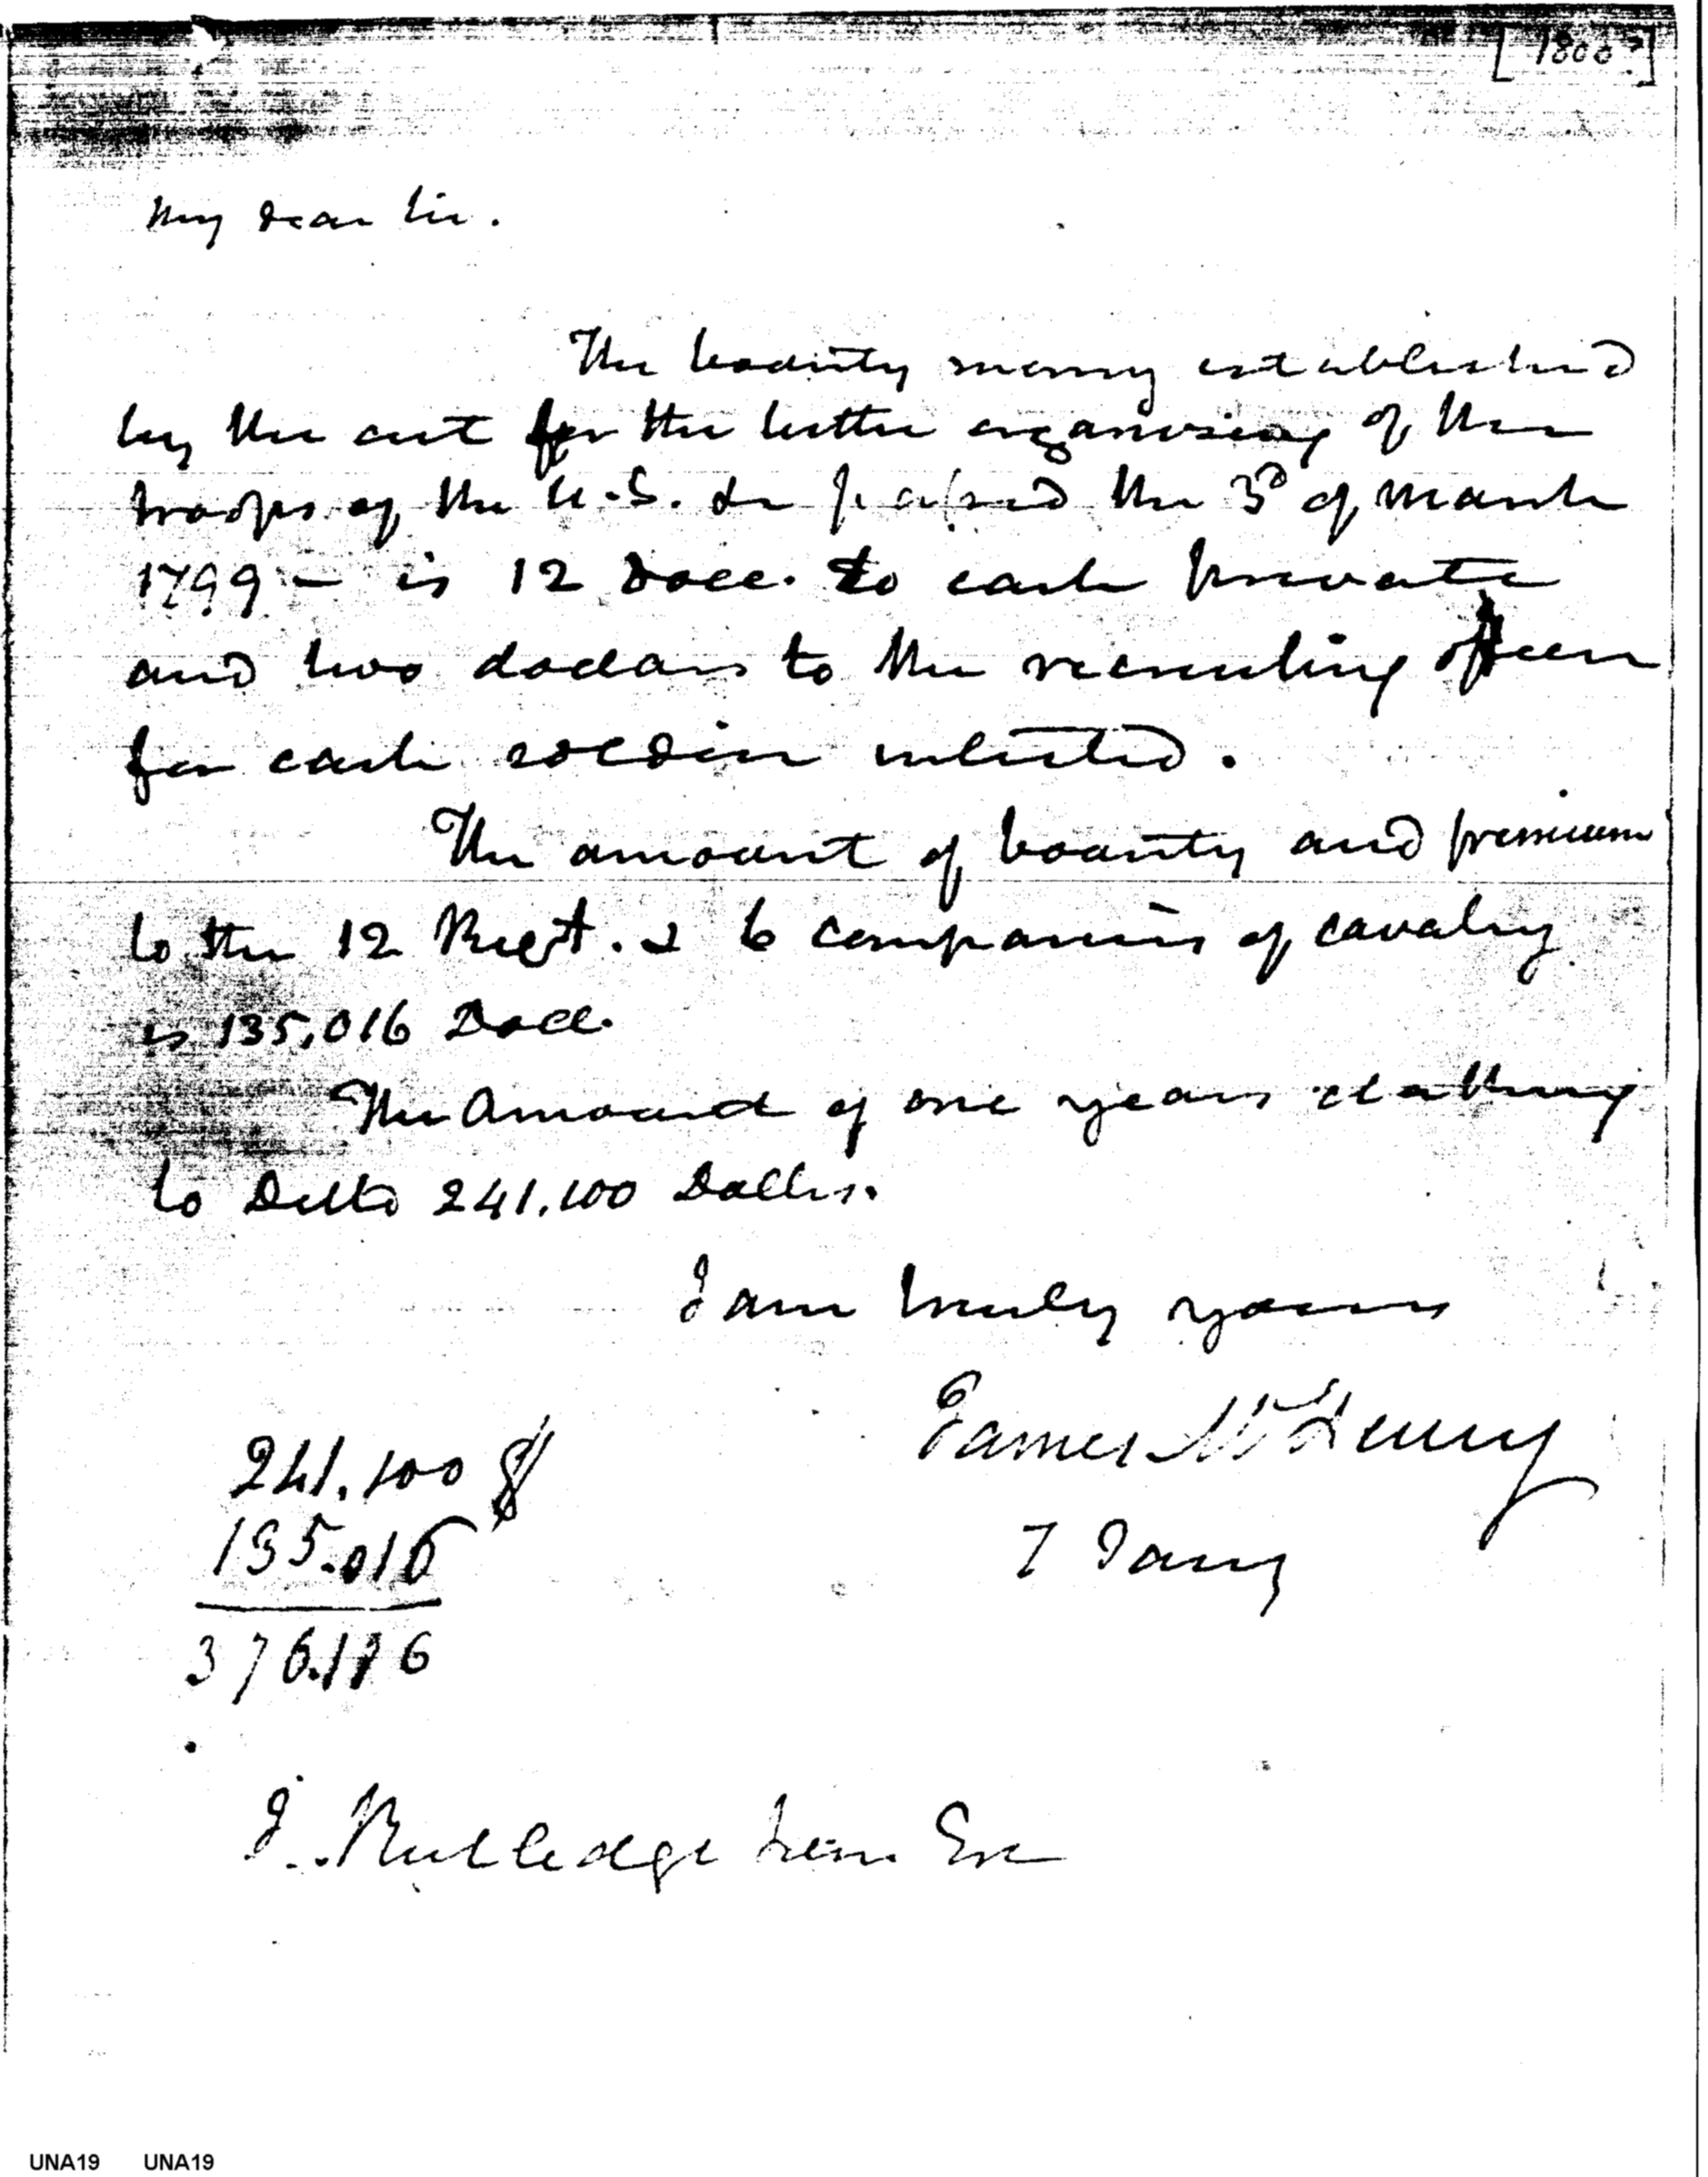 [1800?]
My dear Sir.
The bounty money established
by the act for the better organising of the
troops of the U.S. &c passed the 3d of March
1799 — is 12 Doll. to each private
and two dollars to the recruiting officer
for each soldier inlisted.
The amount of bounty and premium
to the 12 Regt. & 6 companies of cavalry
is 135,016 Doll.
The Amount of one years clothing
to Ditto 241,100 Dollrs.
I am truly yours
James McHenry
7 Jany
241.100 $
135.016
376.116
J. Rutledge Junr. Esr
UNA19 UNA19